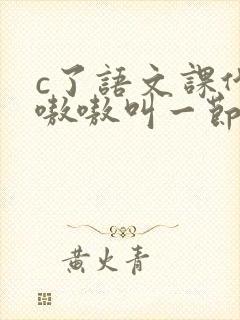 c了語文課代
嗷嗷叫一節
黄火青